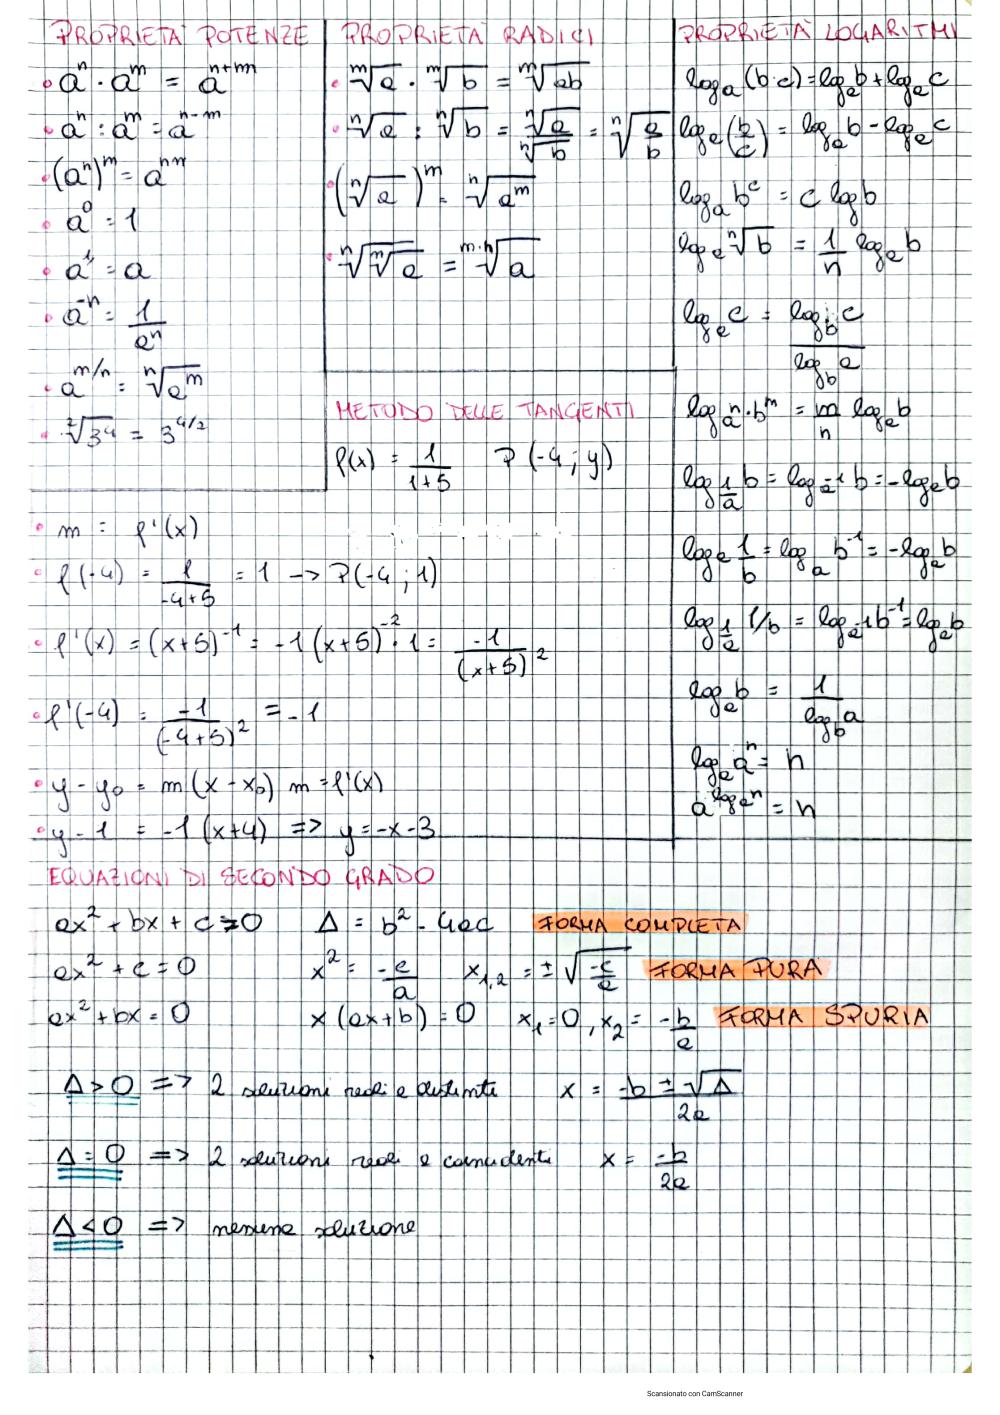 PROPRIETÀ POTENZE
• aⁿ · aᵐ = aⁿ⁺ᵐ
• aⁿ : aᵐ = aⁿ⁻ᵐ
• (aⁿ)ᵐ = aⁿᵐ
• a⁰ = 1
• a¹ = a
• a⁻ⁿ = 1/aⁿ
• a^(m/n) = ⁿ√aᵐ
• ²√3⁴ = 3^(4/2)
PROPRIETÀ RADICI
• ᵐ√a · ᵐ√b = ᵐ√ab
• ⁿ√a : ⁿ√b = ⁿ√a/ⁿ√b = ⁿ√(a/b)
• (ⁿ√a)ᵐ = ⁿ√aᵐ
• ⁿ√ᵐ√a = ᵐ·ⁿ√a
PROPRIETÀ LOGARITMI
logₐ(b·c) = logₐb + logₐc
logₐ(b/c) = logₐb - logₐc
logₐb^c = c logb
logₐ ⁿ√b = 1/n logₐb
logₐc = log_b c / log_b a
log_aⁿ·bᵐ = m/n logₐb
log_(1/a) b = log_a⁻¹ b = -logₐb
logₐ 1/b = logₐ b⁻¹ = -logₐb
log_(1/a) 1/b = log_a⁻¹ b⁻¹ = logₐb
logₐb = 1/log_b a
logₐaⁿ = n
a^(logₐn) = n
METODO DELLE TANGENTI
f(x) = 1/(1+5) P(-4; y)
• m = f'(x)
• f(-4) = 1/(-4+5) = 1 -> P(-4; 1)
• f'(x) = (x+5)⁻¹ = -1(x+5)⁻² · 1 = -1/(x+5)²
• f'(-4) = -1/(-4+5)² = -1
• y - y₀ = m(x - x₀) m = f'(x)
• y - 1 = -1(x+4) => y = -x-3
EQUAZIONI DI SECONDO GRADO
ax² + bx + c = 0 Δ = b² - 4ac FORMA COMPLETA
ax² + c = 0 x² = -c/a x₁,₂ = ±√(-c/a) FORMA PURA
ax² + bx = 0 x(ax+b) = 0 x₁=0, x₂ = -b/a FORMA SPURIA
Δ > 0 => 2 soluzioni reali e distinte x = (-b ± √Δ)/2a
Δ = 0 => 2 soluzioni reali e coincidenti x = -b/2a
Δ < 0 => nessuna soluzione
Scansionato con CamScanner